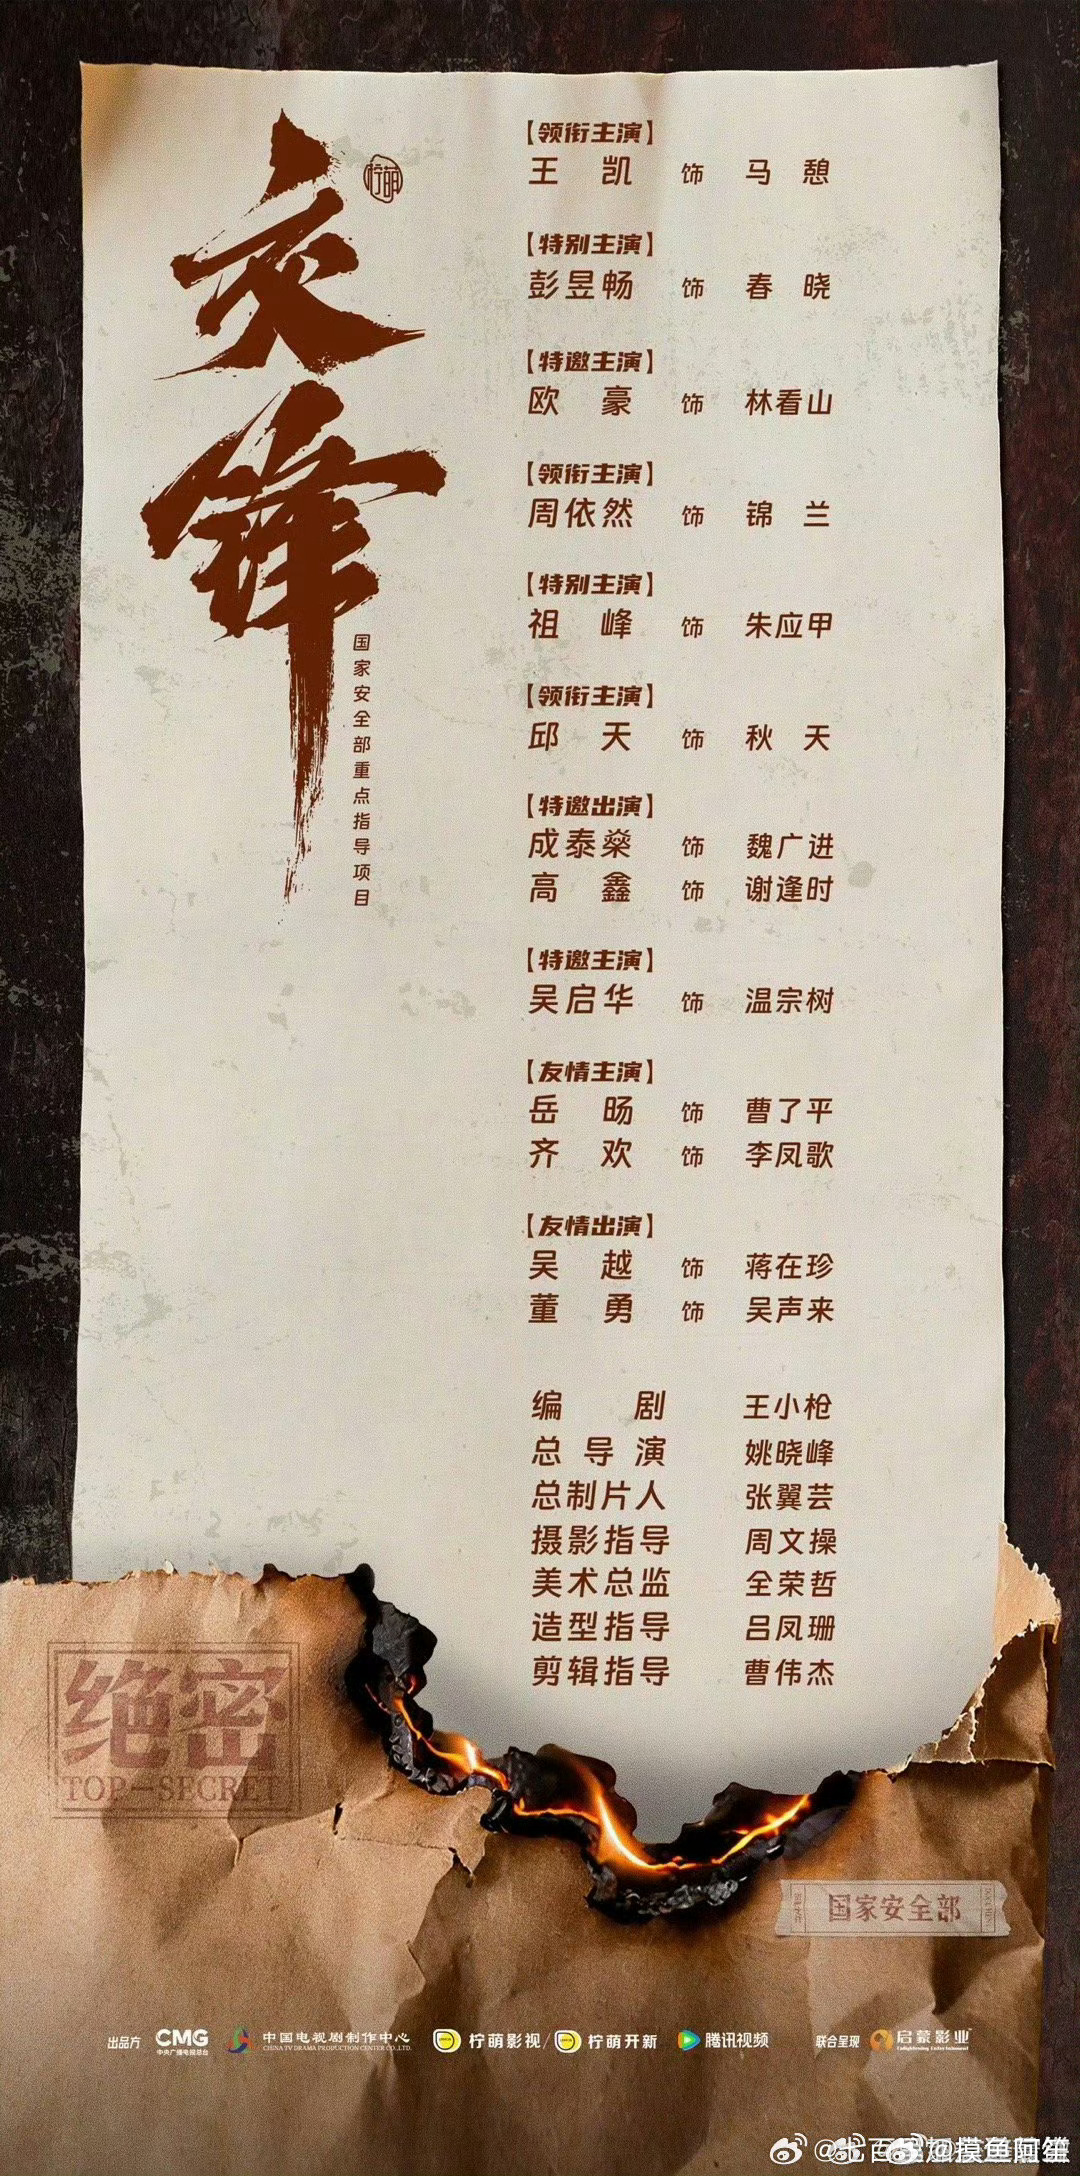 交锋
柠萌
国家安全部重点指导项目
【领衔主演】
王凯 饰 马憩
【特别主演】
彭昱畅 饰 春晓
【特邀主演】
欧豪 饰 林看山
【领衔主演】
周依然 饰 锦兰
【特别主演】
祖峰 饰 朱应甲
【领衔主演】
邱天 饰 秋天
【特邀出演】
成泰燊 饰 魏广进
高鑫 饰 谢逢时
【特邀主演】
吴启华 饰 温宗树
【友情主演】
岳旸 饰 曹了平
齐欢 饰 李凤歌
【友情出演】
吴越 饰 蒋在珍
董勇 饰 吴声来
编剧 王小枪
总导演 姚晓峰
总制片人 张翼芸
摄影指导 周文操
美术总监 全荣哲
造型指导 吕凤珊
剪辑指导 曹伟杰
绝密
TOP-SECRET
国家安全部
出品方 CMG 中央广播电视总台 中国电视剧制作中心 CHINA TV DRAMA PRODUCTION CENTER CO.,LTD. 柠萌影视/柠萌开新 腾讯视频 联合呈现 启蒙影业 Enlightening Entertainment
@摸鱼阿笙